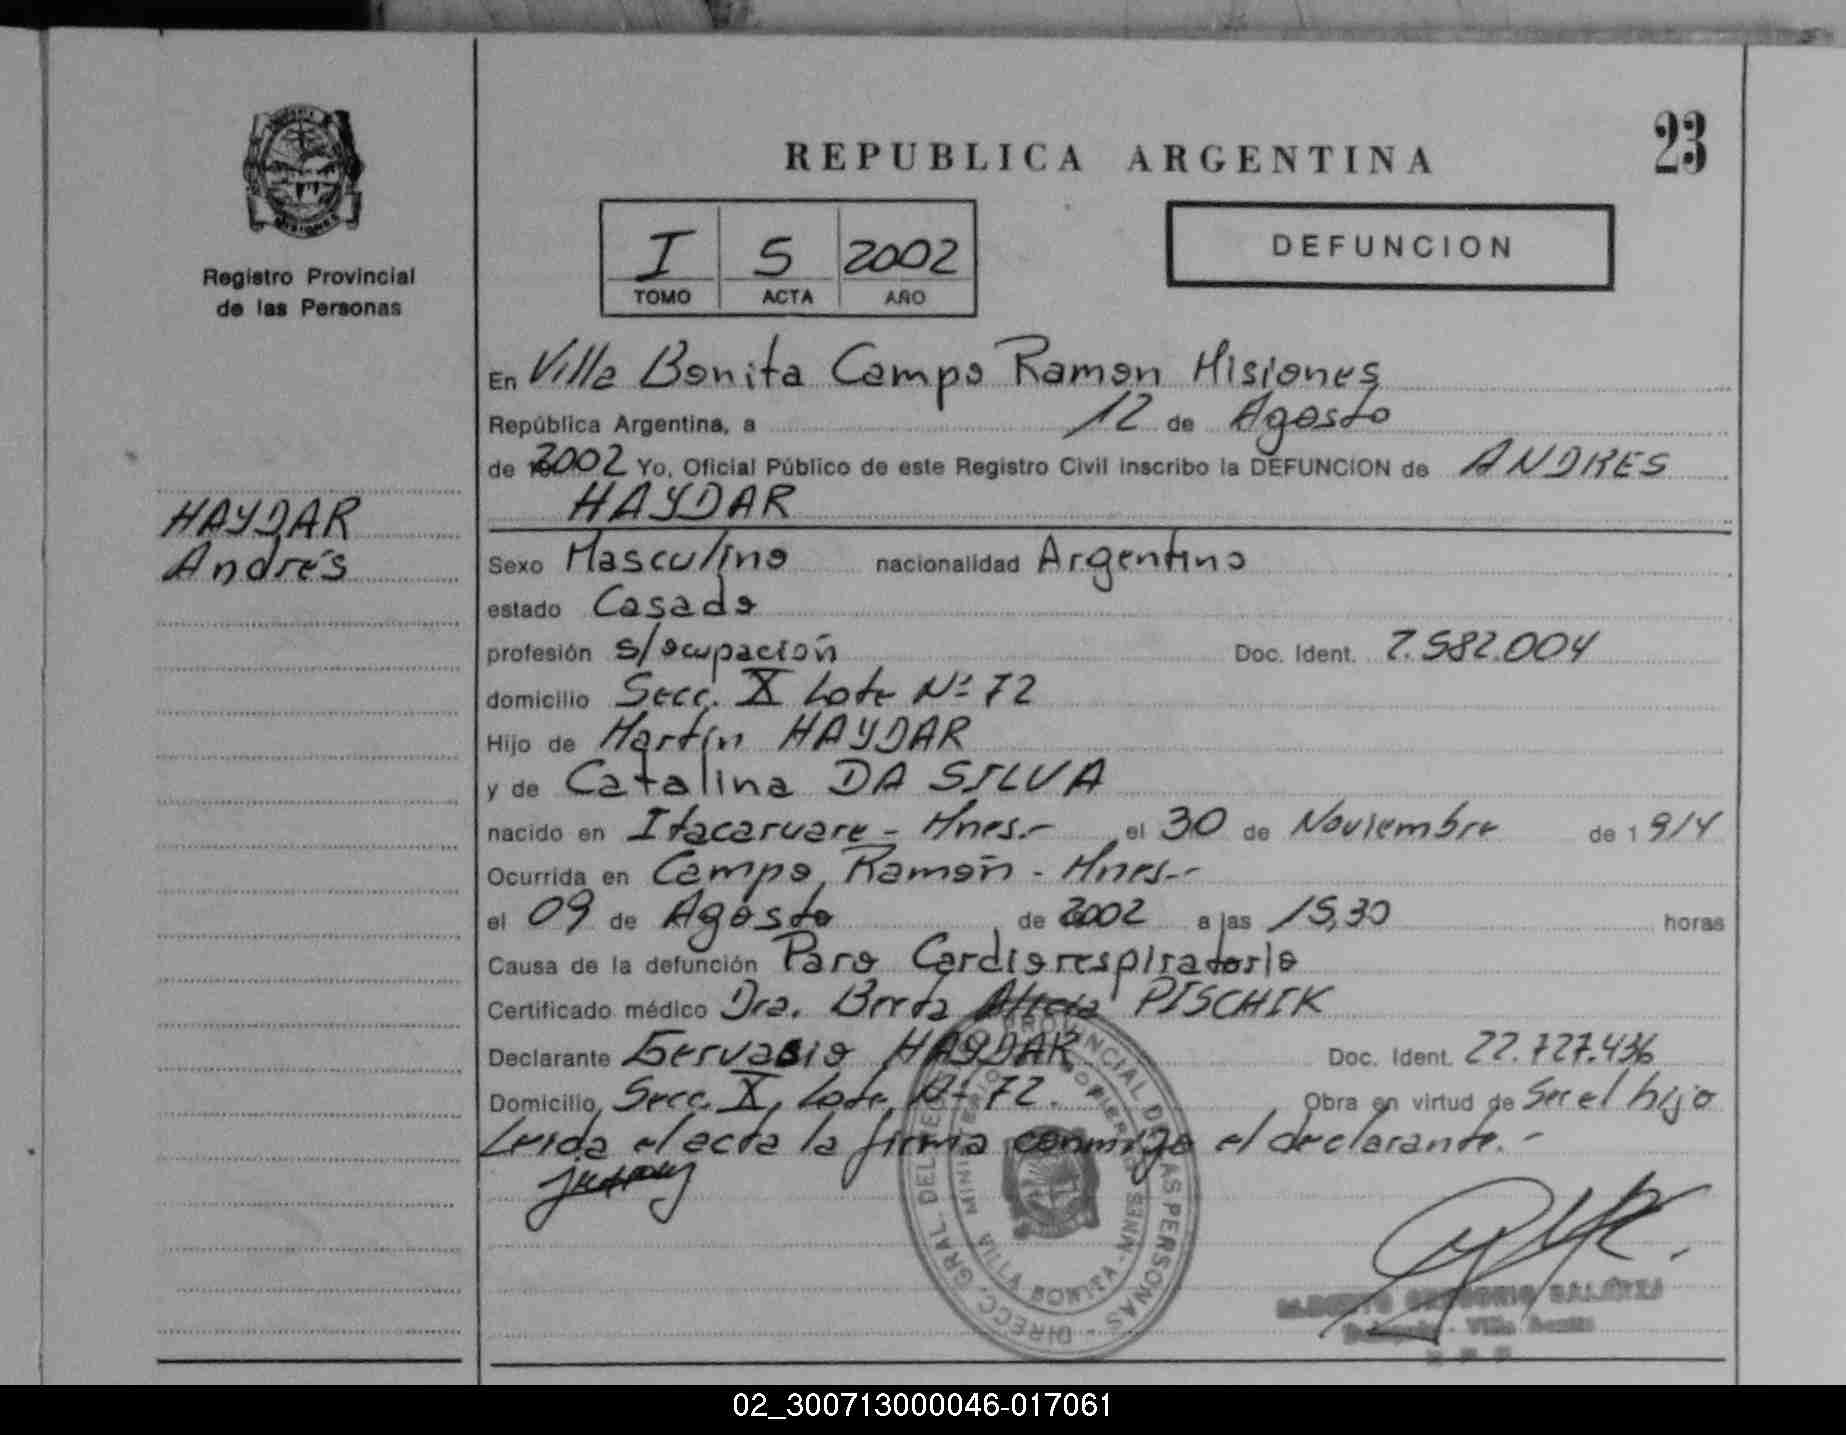 REPUBLICA ARGENTINA
23
Registro Provincial
de las Personas
I 5 2002
TOMO ACTA AÑO
DEFUNCION
En Villa Bonita Campo Ramon Misiones
República Argentina, a 12 de Agosto
de 2002 Yo, Oficial Público de este Registro Civil inscribo la DEFUNCION de ANDRES
HAYDAR
HAYDAR
Andrés
Sexo Masculino nacionalidad Argentino
estado Casado
profesión s/ocupación Doc. Ident. 7.582.004
domicilio Secc. X Lote Nº 72
Hijo de Martín HAYDAR
y de Catalina DA SILVA
nacido en Itacaruare - Mnes.- el 30 de Noviembre de 1914
Ocurrida en Campo Ramón - Mnes.-
el 09 de Agosto de 2002 a las 15,30 horas
Causa de la defunción Paro Cardiorespiratorio
Certificado médico Dra. Berta Alicia PISCHIK
Declarante Gervasio HAYDAR Doc. Ident. 22.727.436
Domicilio Secc. X, Lote Nº 72. Obra en virtud de Ser el hijo
Leida el acta la firma conmigo el declarante.-
DIRECC. GRAL. DEL REGISTRO PROVINCIAL DE LAS PERSONAS -
MINISTERIO DE GOBIERNO
VILLA BONITA - MNES
Villa Bonita
02_300713000046-017061